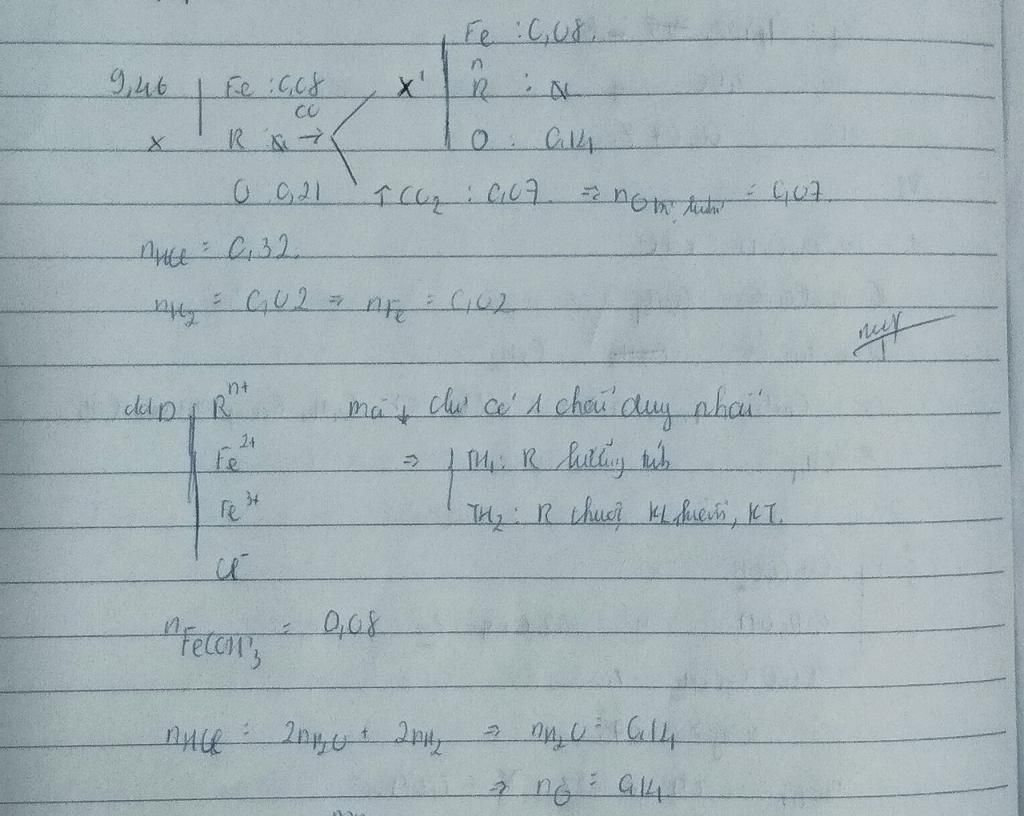 Fe : 0,08.
9,46 Fe : 0,08 X' n
R : x
X R x CO → O : 0,14
O : 0,21 ↑ CO2 : 0,07 ⇒ nO = 0,07.
nHCl = 0,32.
nH2 = 0,02 ⇒ nFe = 0,02
ddD R^n+ mà ↓ chỉ có 1 chất duy nhất
Fe^2+ ⇒ TH1: R lưỡng tính
Fe^3+ TH2: R thuộc KL kiềm, KT.
Cl^-
nFe(OH)3 = 0,08
nHCl = 2nH2O + 2nH2 ⇒ nH2O = 0,14
⇒ nO = 0,14